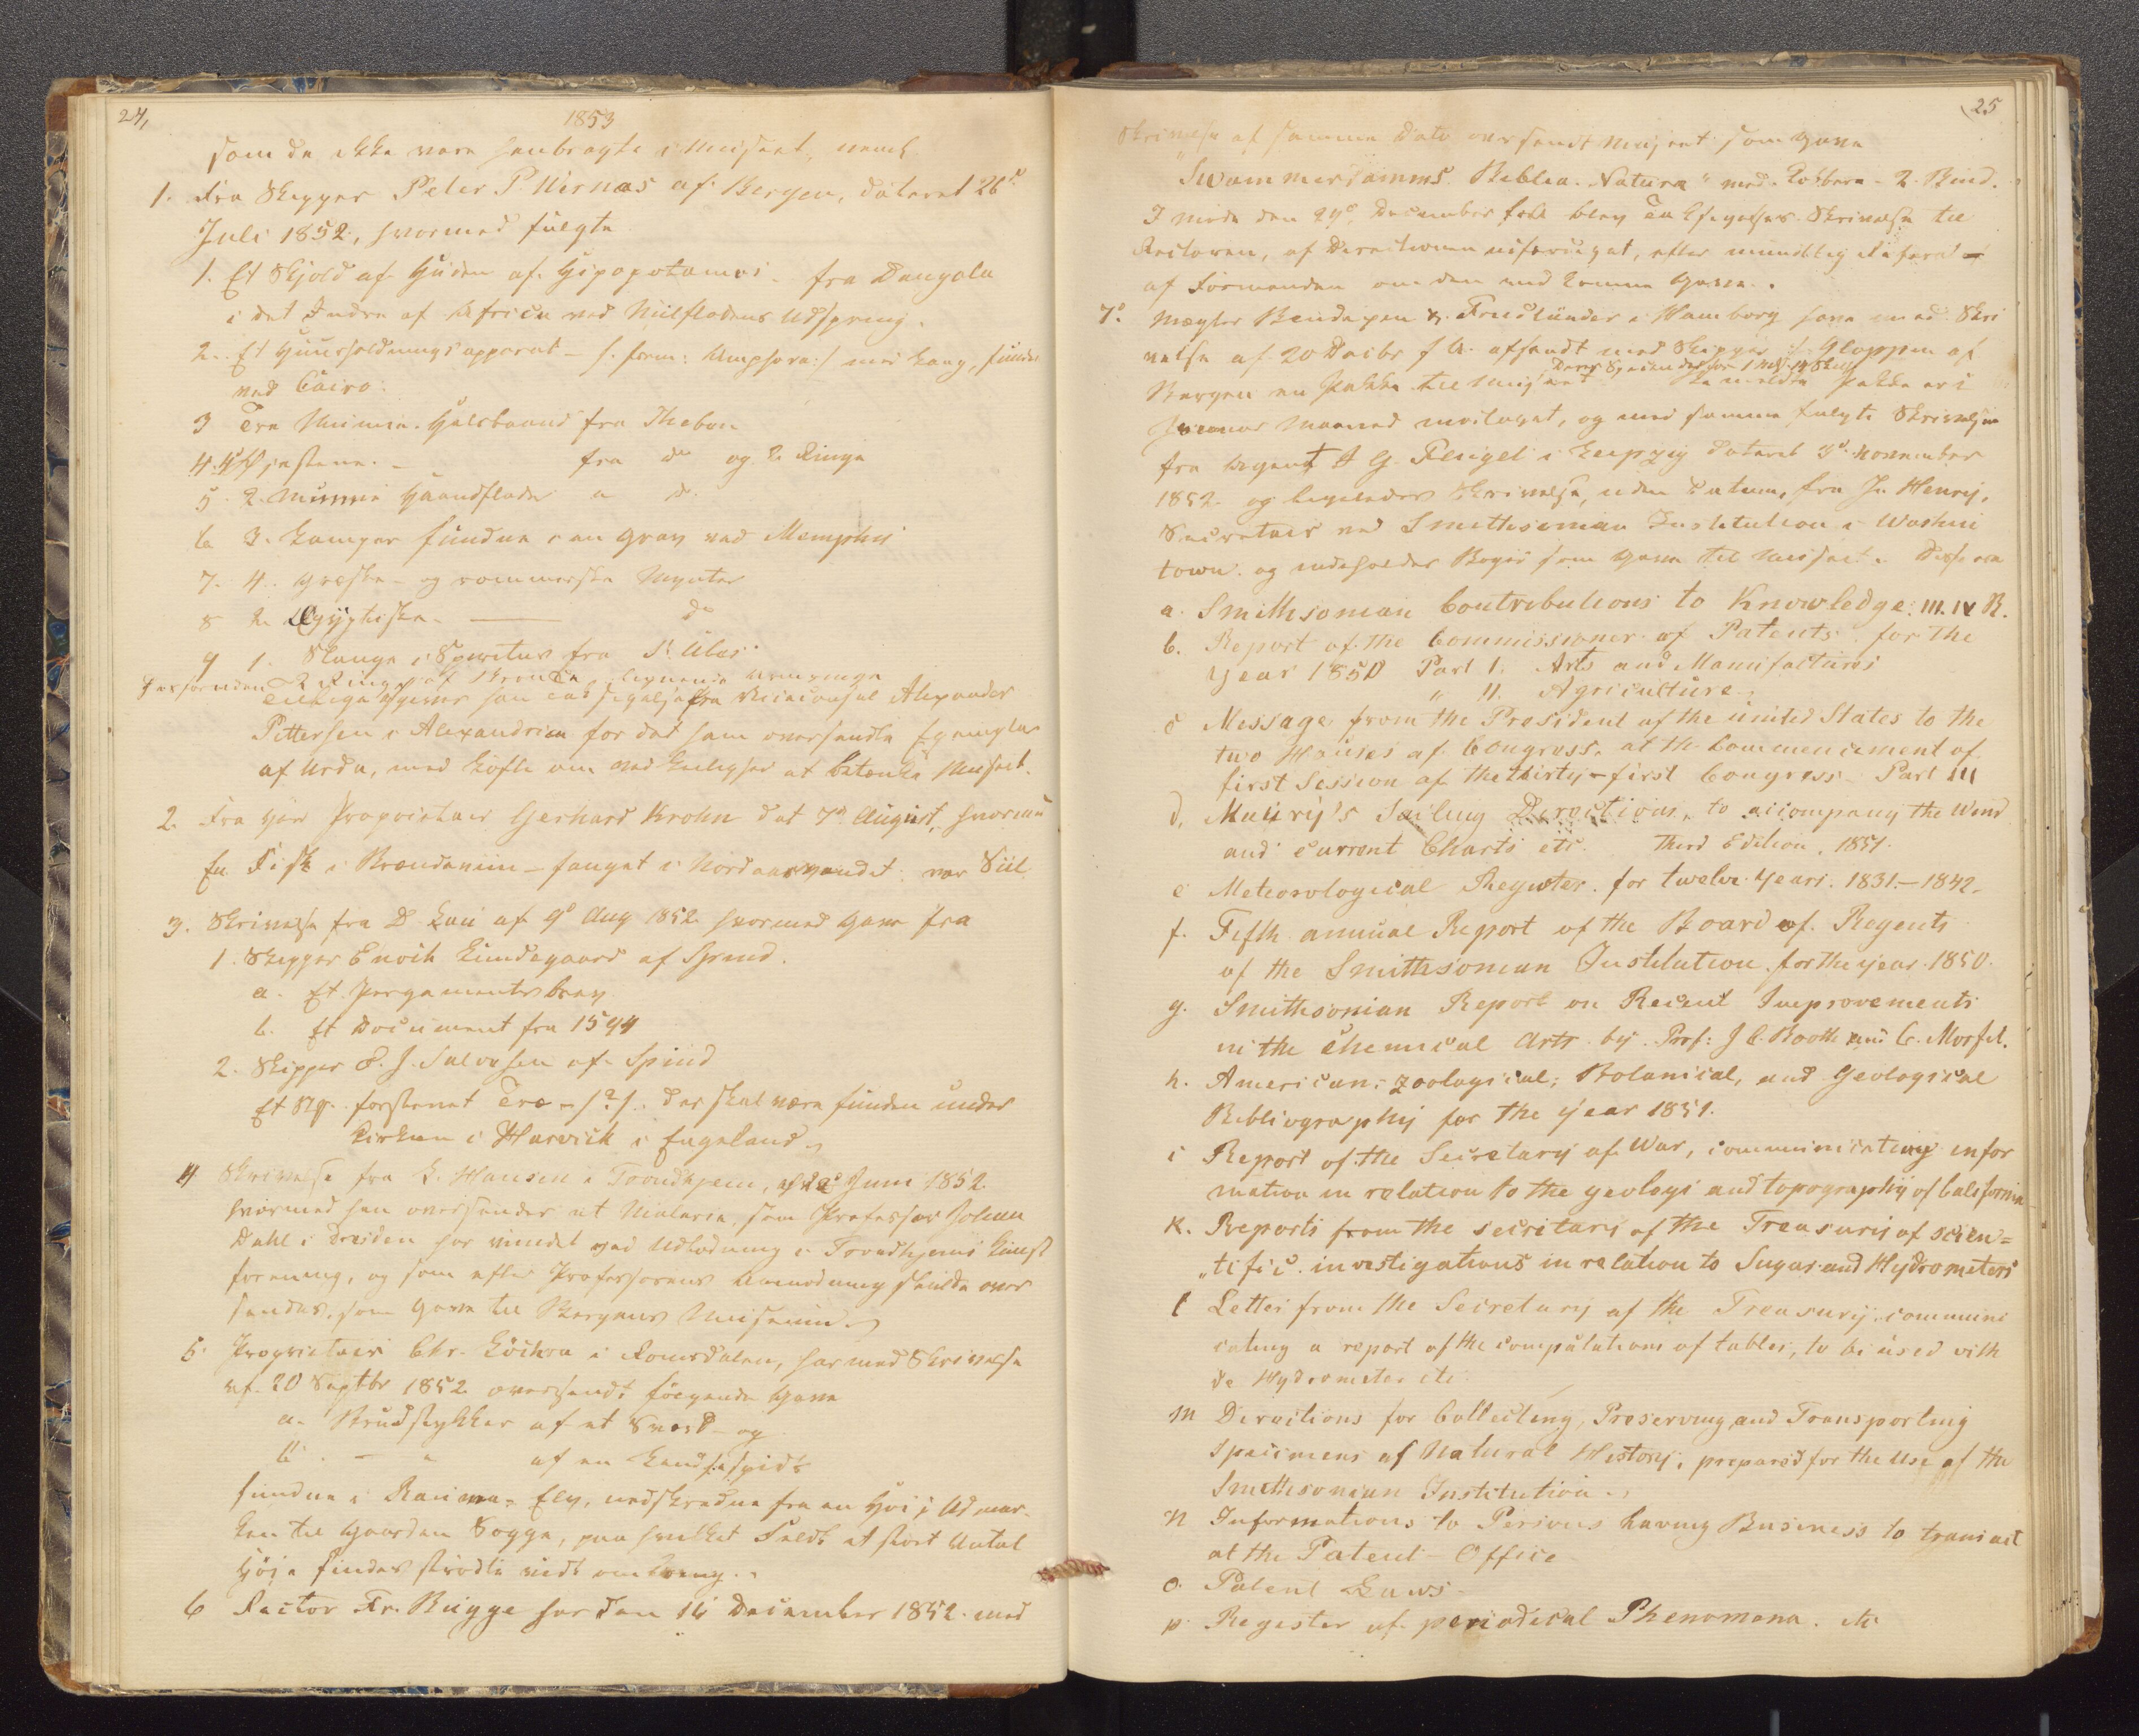 24,
1853
som da ikke vare henbragte i Museet, nemlig
1. Fra Skipper Peter P. Wernoes af Bergen, dateret 26d
Juli 1852, hvormed fulgte
1. Et Skjold af Huden af Hipopotamus - fra Dongola
i det Indre af Africa ved Nilflodens Udspring.
2. Et Huusholdningsapparat - /: form: Amphora:/ med Laag, funden
ved Cairo.
3 Tre Mumie-Halsbaand fra Theben
fra do og 2 Ringe
5. 2 Mumie Haandflader - do
6 3 Lamper fundne i en Grav ved Memphis
7. 4. Græske- og rommerske Mynter
8 2 Ægyptiske - do
9 1. Slange i Spiritus fra St Ubes.
Desforuden 2 Ringe af Bronce
Tillige har Taksigelse fra Viceconsul Alexander
Pettersen i Alexandrien for det ham oversendte Exemplar
af Urda, med Løfte om ved Leilighed at betænke Museet.
2. Fra Hr Proprietair Gerhard Krohn dat 7d August, hvormed
En Fisk i Brændeviin - fanget i Nordaasvandet: var Siil
3. Skrivelse fra D af 9d Aug 1852 hvormed Gave fra
1. Skipper Enoch Lundegaard af Spind.
a. Et Pergamentsbrev
b. Et Document fra 1594
2. Skipper S. J. Salvesen af Spind
Et St. forstenet Træ - /?/. der skal være funden under
Kirken i Harvich i Engeland
4 Skrivelse fra L. Hansen i Trondhjem, af Juni 1852
hvormed han oversender et Malerie, som Professor Johan
Dahl i Dresden har vundet ved Udlodning i Trondhjems Kunst
forening, og som efter Professorens Anmodning skulde over
sendes, som Gave til Bergens Museum.
5. Proprietair Chr. Löchra i Romsdalen, har med Skrivelse
af 20 Septbr 1852 oversendt følgende Gave
a. Brudstykker af et Sværd - og
b. - " af en Landsespids
fundne i Rauma-Elv, nedskredne fra en Høi i Udmar-
ken til Gaarden Sogge, paa hvilket Feldt et stort Antal
Høie findes strødte vidt omkring.
6 Rector Fr. Bugge har den 14 December 1852 med
25
Skrivelse af samme Dato oversendt Museet som Gave
"Swammerdamms Biblia Natura" med Kobbere - 2 Bind.
I Møde den 24d December blev Taksigelses Skrivelse til
Rectoren, af Directionen udfærdiget, efter mundtlig Referat
af Formanden om den indkomne Gave.
7d. Mægler Bendixen & Friedländer i Hamborg have med Skri
velse af 20 Decbr f. A. afsendt med Skipper Gloppen af
Bergen en Pakke til Museet. Pakke er i
Januar Maaned modtaget, og med samme fulgte Skrivelse
fra Agent J G. Flügel i Leipzig dateret 3d November
1852 og ligeledes Skrivelse, uden Datum, fra Js Henry,
Secretair ved Smithsonian Institution i Washin
town og indeholder Bøger som Gave til Museet. Disse ere
a. Smithsonian Contributions to Knowledge. III. IV B.
b. Report of the Commissioner of Patents for the
year 1850 Part 1. Arts and Manufactures
" 11. Agriculture.
c Message from the President of the united States to the
two Houses of Congress. at the commencement of
first Session of the thirty-first Congress Part III
d. Maury's Sailing Directions, to accompany the Wind
and current Charts etc. Third Edition. 1851.
e Meteorological Register. for twelve years. 1831.-1842.
f. Fifth annual Report of the Board of Regents
of the Smithsonian Institution for the year 1850.
g. Smithsonian Report on Recent Improvements
in the Chemical Arts by Prof: J C. Booth and C. Morfit.
h. American; Zoological; Botanical, and Geological
Bibliography for the year 1851.
i Report of the Secretary of War, communicating infor
mation in relation to the geology and topography of California
K. Reports from the secretary of the Treasury of scien=
"tific. investigations in relation to Sugar and Hydrometers
l Letter from the Secretary of the Treasury. communi
cating a report of the computations of tables, to be used with
de Hydrometer etc.
m Directions for Collecting, Preserving and Transporting
specimens of Natural History, prepared for the use of the
Smithsonian Institution.
n Informations to Persons having Business to transact
at the Patent-Office
o. Patent Laws.
p. Register of periodical Phenomena. etc